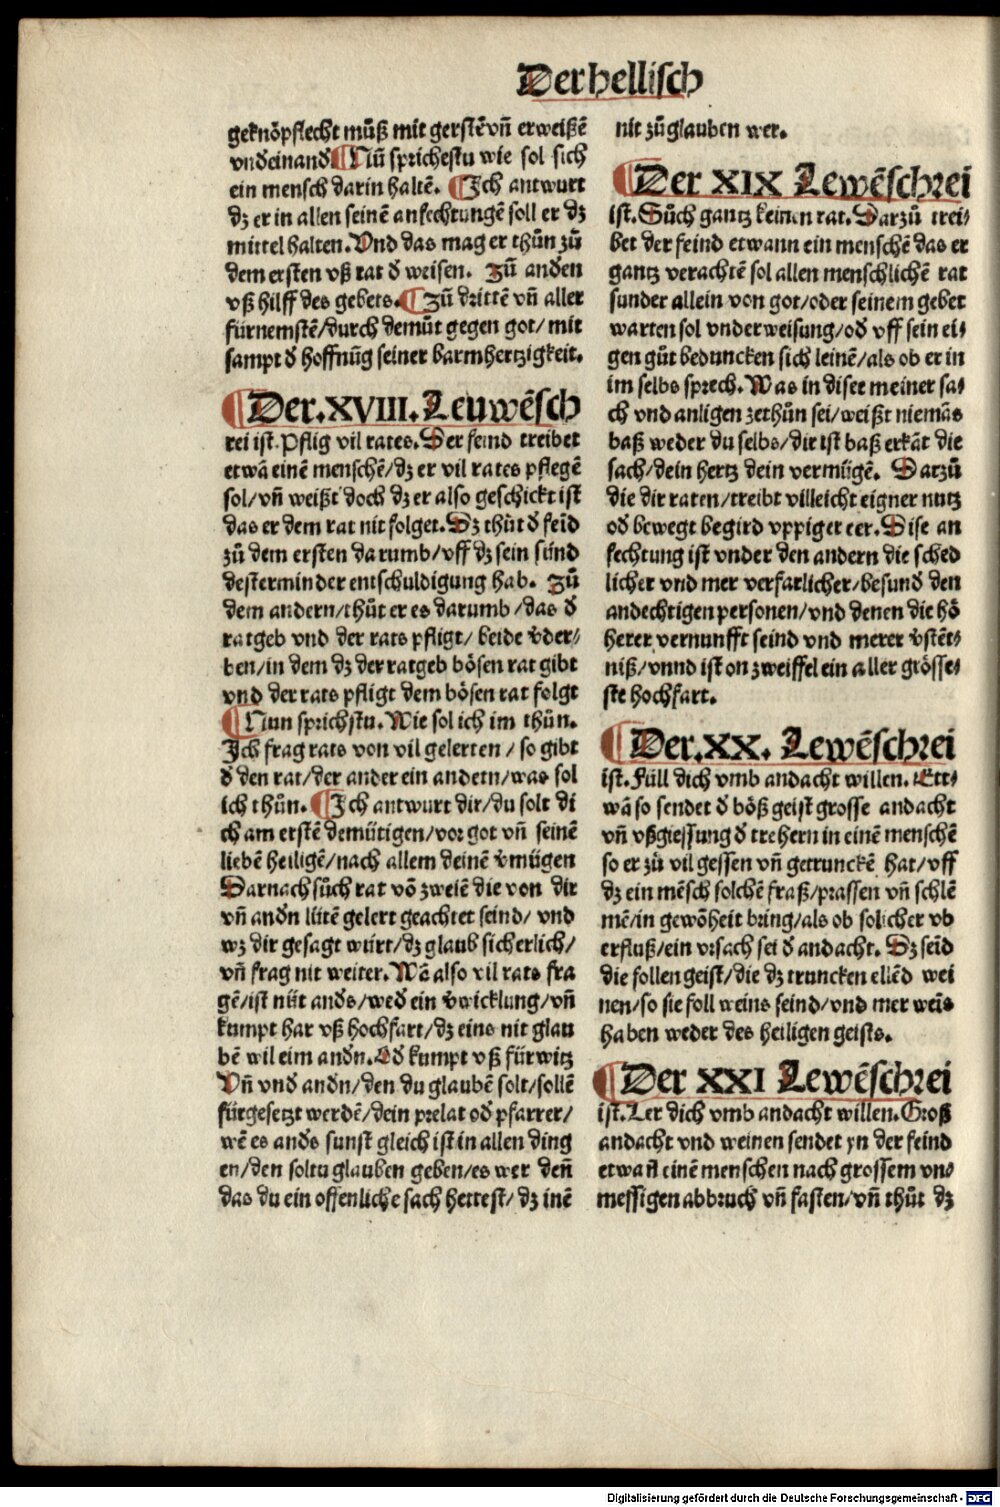 Der hellisch
geknöpflecht můß mit gerstē vñ erweißē
vndeinand̄ Nūn sprichestu wie sol sich
ein mensch darin haltē. Ich antwurt
dz er in allen seinē anfechtungē soll er dz
mittel halten. Vnd das mag er thůn zů
dem ersten vß rat d̄ weisen. Zů anden
vß hilff des gebets. Zů drittē vñ aller
fürnemstē/durch demůt gegen got/ mit
sampt d̄ hoffnūg seiner barmhertzigkeit.
Der.XVIII. Leuwēsch
rei ist. Pflig vil rates. Der feind treibet
etwā einē menschē/dz er vil rates pflegē
sol/vñ weißt doch dz er also geschickt ist
das er dem rat nit folget. Dz thůt d̄ feīd
zů dem ersten darumb/vff dz sein sünd
desterminder entschuldigung hab. Zů
dem andern/thůt er es darumb/das d̄
ratgeb vnd der rats pfligt/ beide v̄der/
ben/in dem dz der ratgeb bösen rat gibt
vnd der rats pfligt dem bösen rat folgt
Nun sprichstu. Wie sol ich im thůn.
Ich frag rats von vil gelerten / so gibt
d̄ den rat/der ander ein andern/was sol
ich thůn. Ich antwurt dir/du solt di
ch am erstē demütigen/vor got vñ seinē
liebē heiligē/nach allem deinē v̄mügen
Darnach sůch rat vō zweiē die von dir
vñ andn̄ lütē gelert geachtet seind/ vnd
wz dir gesagt würt/dz glaub sicherlich/
vñ frag nit weiter. Wē also vil rats fra
gē/ist nüt and̄s/wed̄ ein v̄wicklung/vñ
kumpt har vß hochfart/dz eins nit glau
bē wil eim andn̄. Od̄ kumpt vß fürwitz
Vñ vnd andn̄/den du glaubē solt/sollē
fürgesetzt werdē/dein prelat od̄ pfarrer/
wē es and̄s sunst gleich ist in allen ding
en/den soltu glauben geben/es wer deñ
das du ein offenliche sach hettest/ dz inē
nit zůglauben wer.
Der XIX Lewēschrei
ist. Sůch gantz keinen rat. Darzů trei/
bet der feind etwann ein menschē das er
gantz verachtē sol allen menschlichē rat
sunder allein von got/oder seinem gebet
warten sol vnderweisung/od̄ vff sein ei/
gen gůt beduncken sich leinē/als ob er in
im selbs sprech. Was in diser meiner sa/
ch vnd anligen zethůn sei/weißt niemās
baß weder du selbs/dir ist baß erkāt die
sach/dein hertz dein vermügē. Darzů
die dir raten/treibt villeicht eigner nutz
od̄ bewegt begird vppiger eer. Dise an
fechtung ist vnder den andern die sched
licher vnd mer verfarlicher/besund̄ den
andechtigen personen/vnd denen die hö
herer vernunfft seind vnd merer v̄stēt/
niß/vnnd ist on zweiffel ein aller grösse/
ste hochfart.
Der.XX. Lewēschrei
ist. Füll dich vmb andacht willen. Ett/
wā so sendet d̄ böß geist grosse andacht
vñ vßgiessung d̄ trehern in einē menschē
so er zů vil gessen vñ getrunckē hat/vff
dz ein mēsch solchē fraß/prassen vñ schlē
mē/in gewōheit bring/als ob solicher vb
erfluß/ein vrsach sei d̄ andacht. Dz seīd
die follen geist/die dz truncken ellēd wei
nen/so sie foll weins seind/vnd mer weīs
haben weder des heiligen geists.
Der XXI Lewēschrei
ist. Ler dich vmb andacht willen. Groß
andacht vnd weinen sendet yn der feind
etwañ einē menschen nach grossem vn/
messigen abbruch vñ fasten/vñ thůt dz
Digitalisierung gefördert durch die Deutsche Forschungsgemeinschaft - DFG